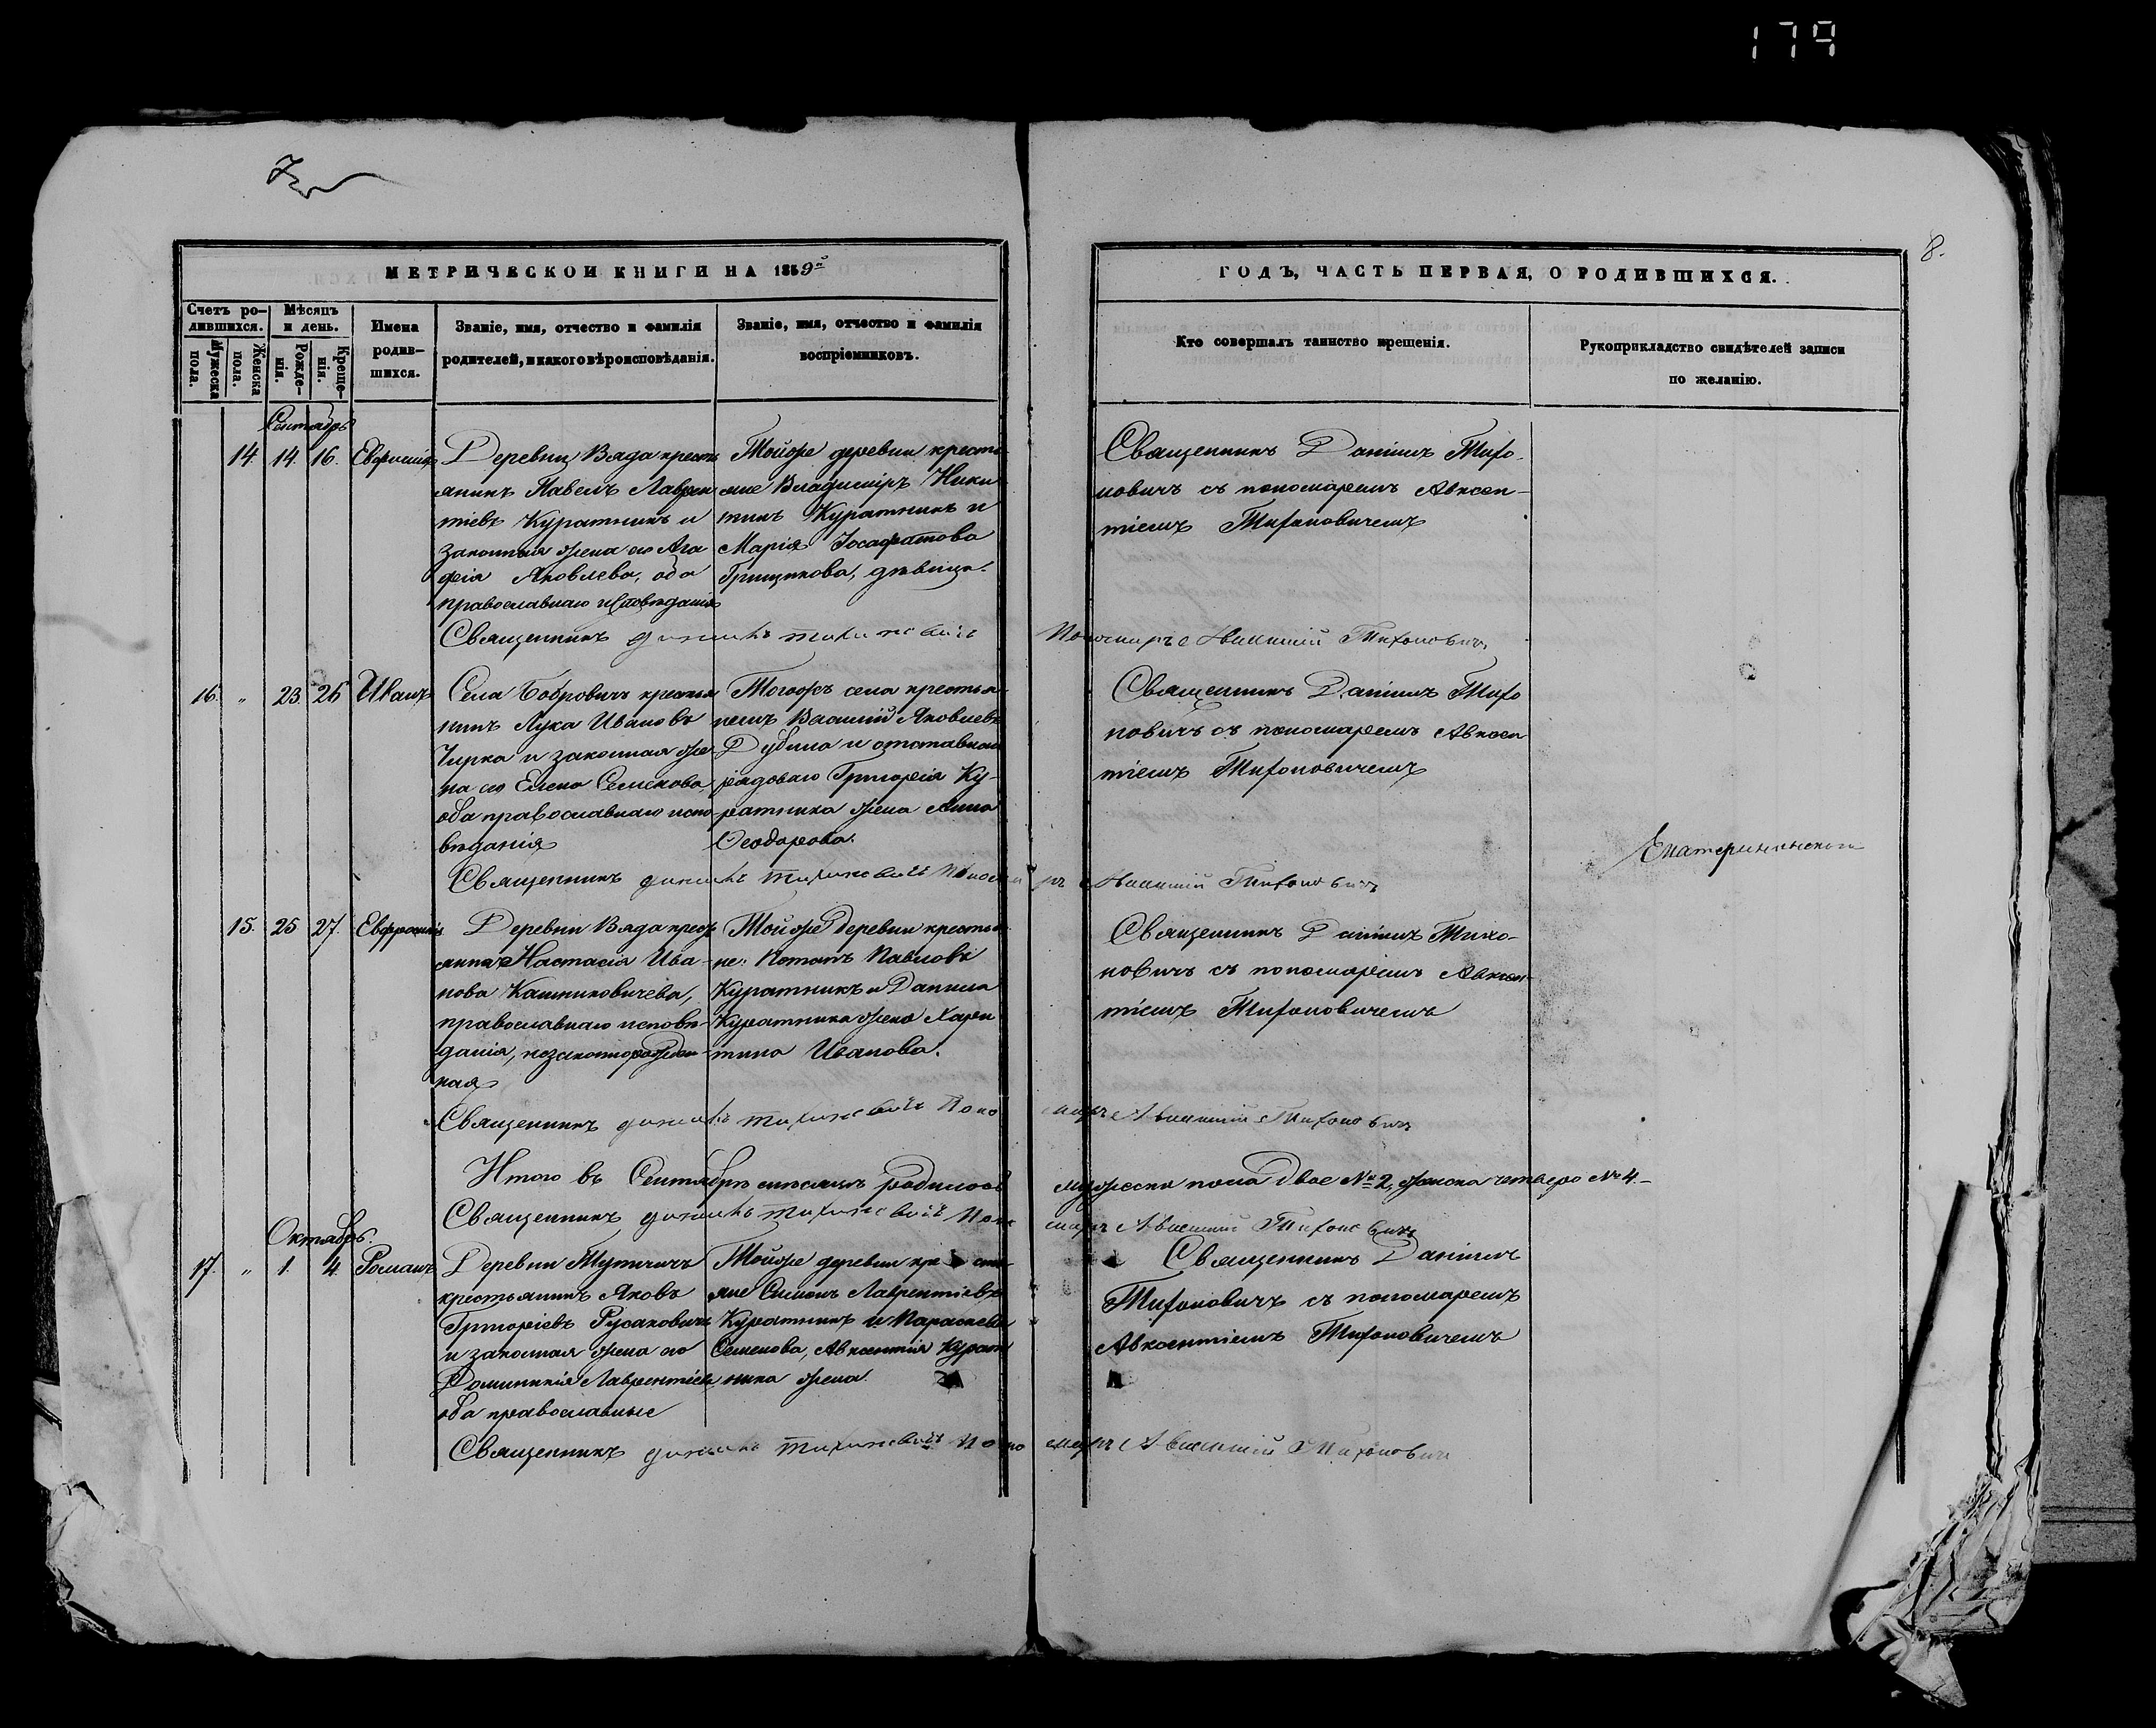 179
8.
МЕТРИЧЕСКОЙ КНИГИ НА 1859й
Счетъ ро-
дившихся.
Мужеска
пола.
Женска
пола.
Мѣсяцъ
и день.
Рожде-
нія.
Креще-
нія.
Имена
родив-
шихся.
Званіе, имя, отчество и фамилія
родителей, и какого вѣроисповѣданія.
Званіе, имя, отчество и фамилія
воспріемниковъ.
ГОДЪ, ЧАСТЬ ПЕРВАЯ, О РОДИВШИХСЯ.
Кто совершалъ таинство крещенія.
Рукоприкладство свидѣтелей записи
по желанію.
Сентябрь
14 14 16.
Деревни Вяда крестья
янинъ Павелъ Лаврен
тіевъ Куратникъ и
законная жена его Ага
фія Яковлева, оба
православнаго исповѣданія
Тойже деревни крестья
яне Владиміръ Ники
тинъ Куратникъ и
Марія Іосафатова
Грищикова, дѣвица.
Священникъ Даніилъ Тихо
новичъ съ пономаремъ Авксен-
тіемъ Тихоновичемъ
Священникъ Даніилъ Тихоновичъ Пономарь Авксентій Тихоновичъ
16. " 23. 25 Иванъ
Села Бобровичъ крестья
нинъ Лука Ивановъ
Чирка и законная же
на его Елена Семенова
оба православнаго испо-
вѣданія
Тогожъ села крестья-
нинъ Василій Яковлевъ
Дубина и отставнаго
рядоваго Григорія Ку-
ратника жена Анна
Ѳеодорова.
Священникъ Даніилъ Тихо
новичъ съ пономаремъ Авксен
тіемъ Тихоновичемъ
Екатерининскаго
Священникъ Даніилъ Тихоновичъ Пономарь Авксентій Тихоновичъ
15. 25 27. Евфросинія
Деревни Вяда крестья
янка Настасія Ива-
нова Кашниковичева,
православнаго исповѣ-
данія, незаконнорожден-
ная
Тойже деревни крестья
не: Потапъ Павловъ
Куратникъ и Данила
Куратника жена Хари
тина Иванова.
Священникъ Даніилъ Тихо-
новичъ съ пономаремъ Авксен-
тіемъ Тихоновичемъ
Священникъ Даніилъ Тихоновичъ Пономарь Авксентій Тихоновичъ
Итого въ Сентябрѣ мѣсяцѣ родилось мужеска пола двое № 2, женска четверо № 4.
Священникъ Даніилъ Тихоновичъ Пономарь Авксентій Тихоновичъ
Октябрь.
17. " 1. 4. Романъ
Деревни Тупичичъ
крестьянинъ Яковъ
Григоріевъ Русаковичъ
и законная жена его
Доминикія Лаврентіева
оба православные
Тойже деревни крестья-
яне Симонъ Лаврентіевъ
Куратникъ и Параскева
Семенова, Авксентія Курат
ника жена.
Священникъ Даніилъ
Тихоновичъ съ пономаремъ
Авксентіемъ Тихоновичемъ
Священникъ Даніилъ Тихоновичъ Пономарь Авксентій Тихоновичъ